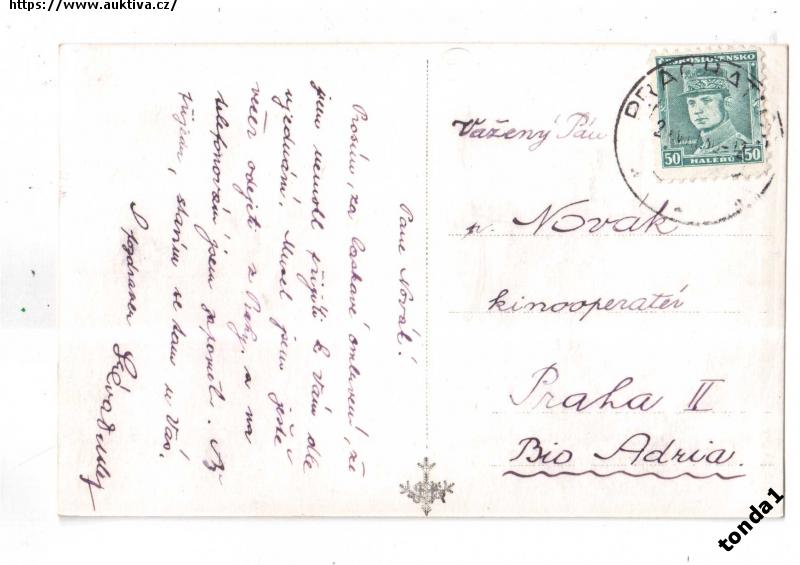 https://www.auktiva.cz/
Pane Novák!
Prosím, za laskavé omluvení, že
jsem nemohl přijíti k Vám dle
ujednání. Musel jsem ještě
večer odejeti z Prahy a na
telefonování jsem zapoměl. Až
přijedu, stavím se tam u Vás.
S pozdravem
ČESKOSLOVENSKO
50 HALÉŘŮ 50
PRACHA
Vážený Pán
p. Novák
kinooperatér
Praha II
Bio Adria.
tonda1